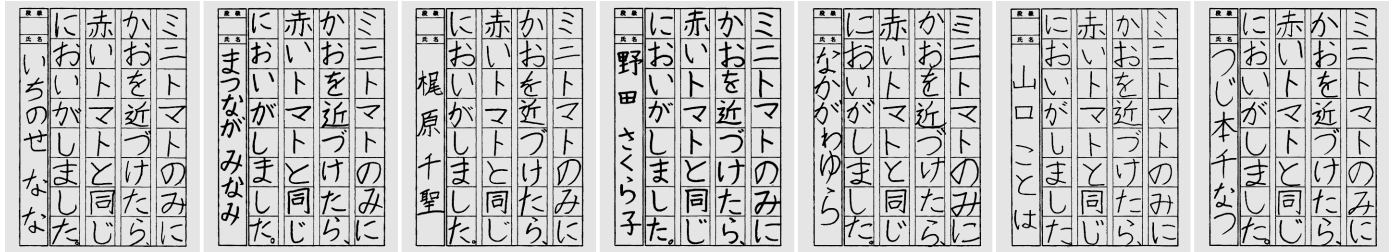 ミニトマトのみに
かおを近づけたら、
赤いトマトと同じ
においがしました。
段級
氏名
いちのせ なな
ミニトマトのみに
かおを近づけたら、
赤いトマトと同じ
においがしました。
段級
氏名
まつながみなみ
ミニトマトのみに
かおを近づけたら、
赤いトマトと同じ
においがしました。
段級
氏名
梶原千聖
ミニトマトのみに
かおを近づけたら、
赤いトマトと同じ
においがしました。
段級
氏名
野田 さくら子
ミニトマトのみに
かおを近づけたら、
赤いトマトと同じ
においがしました。
段級
氏名
ながかわゆら
ミニトマトのみに
かおを近づけたら、
赤いトマトと同じ
においがしました。
段級
氏名
山口 ことは
ミニトマトのみに
かおを近づけたら、
赤いトマトと同じ
においがしました。
段級
氏名
つじ本千なつ